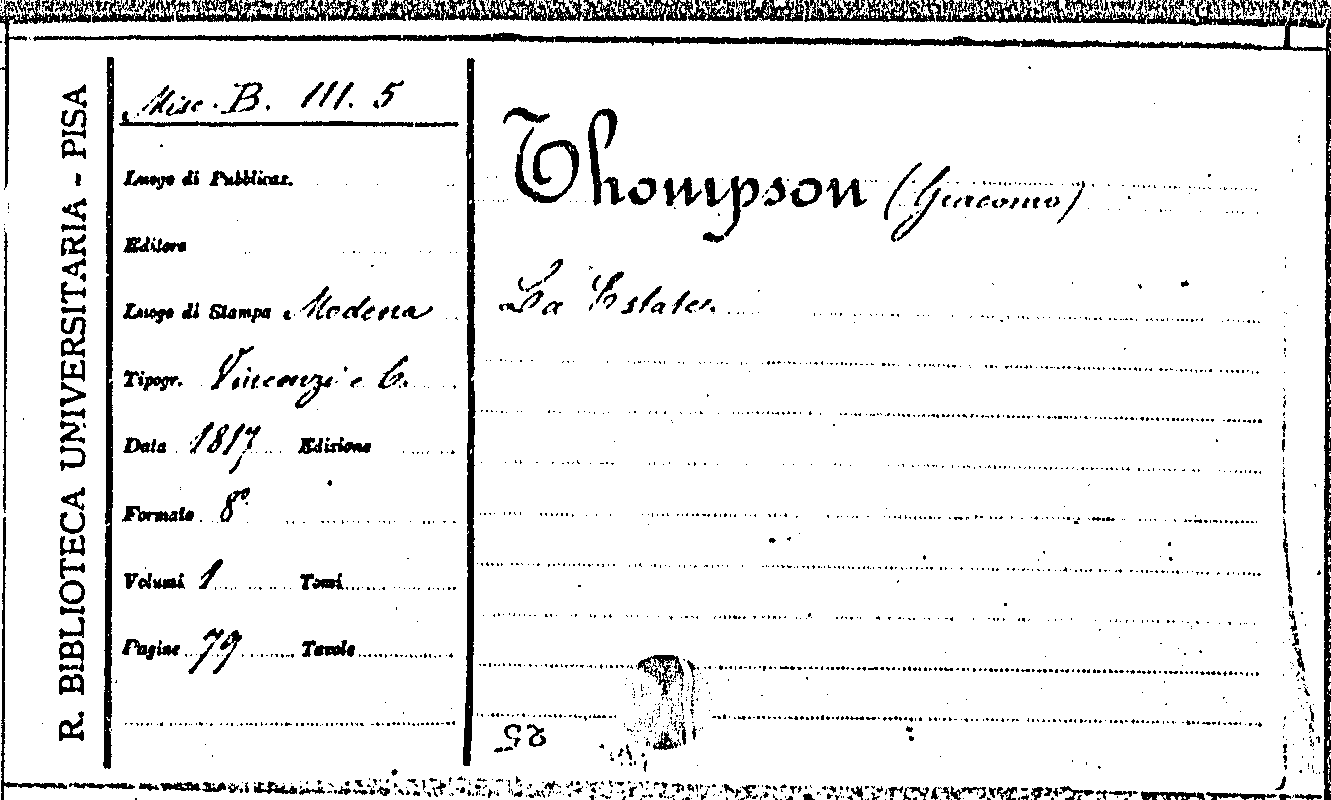 R. BIBLIOTECA UNIVERSITARIA - PISA
Misc. B. III. 5
Luogo di Pubblicaz.
Editore
Luogo di Stampa Modena
Tipogr. Vincenzi e C.
Data 1817 Edizione
Formato 8°
Volumi 1 Tomi
Pagine 79 Tavole
Thompson (Giacomo)
La Estate.
25